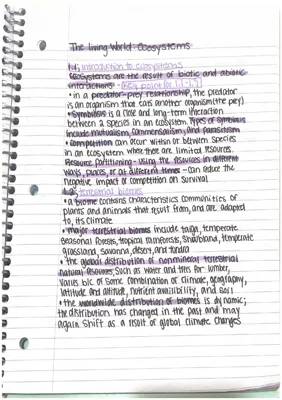 The Living World: Ecosystems
1.1: introduction to ecosystems
Ecosystems are the result of biotic and abiotic
interactions - key point for 1.1-1.3
• in a predator-prey relationship, the predator
is an organism that eats another organism (the prey)
• Symbiosis is a close and long-term interaction
between 2 species in an ecosystem. Types of symbiosis
include mutualism, commensalism, and parasitism
• competition can occur within or between species
in an ecosystem when there are limited resources.
Resource partitioning - using the resources in different
ways, places, or at different times - can reduce the
negative impact of competition on survival
1.2: terrestrial biomes
• a biome contains characteristics communities of
plants and animals that result from, and are adapted
to, its climate
• major terrestrial biomes include taiga, temperate
seasonal forests, tropical rainforests, shrubland, temperate
grassland, savanna, desert, and tundra
• the global distribution of nonmineral terrestrial
natural resources, such as water and trees for lumber,
varies b/c of some combination of climate, geography,
latitude and altitude, nutrient availability, and soil
• the worldwide distribution of biomes is dynamic;
the distribution has changed in the past and may
again shift as a result of global climate changes